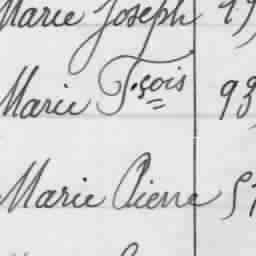 Marie Joseph
Marie Fçois 93
Marie Pierre 51